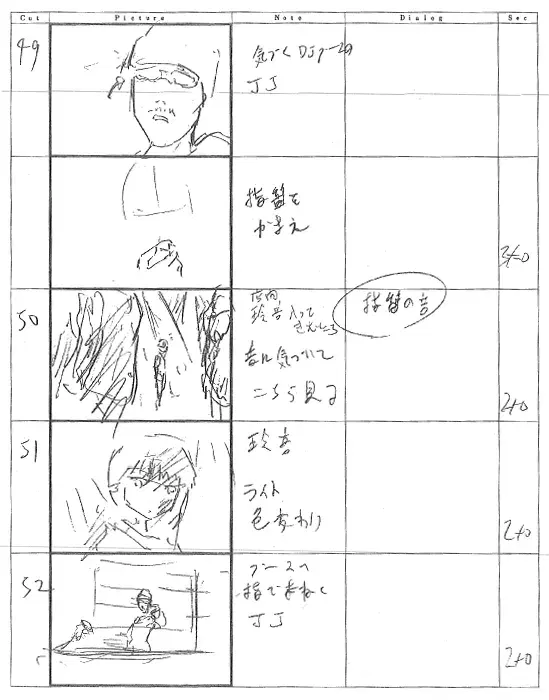 Cut Picture Note Dialog Sec
49
気づくDJブースの
JJ
指盤を
かまえ
3+0
50
店内
玲音入って
きたところ
指盤の音
音に気づいて
こちら見る
2+0
51
玲音
ライト
色変わり
2+0
52
ブースへ
指でまねく
JJ
2+0